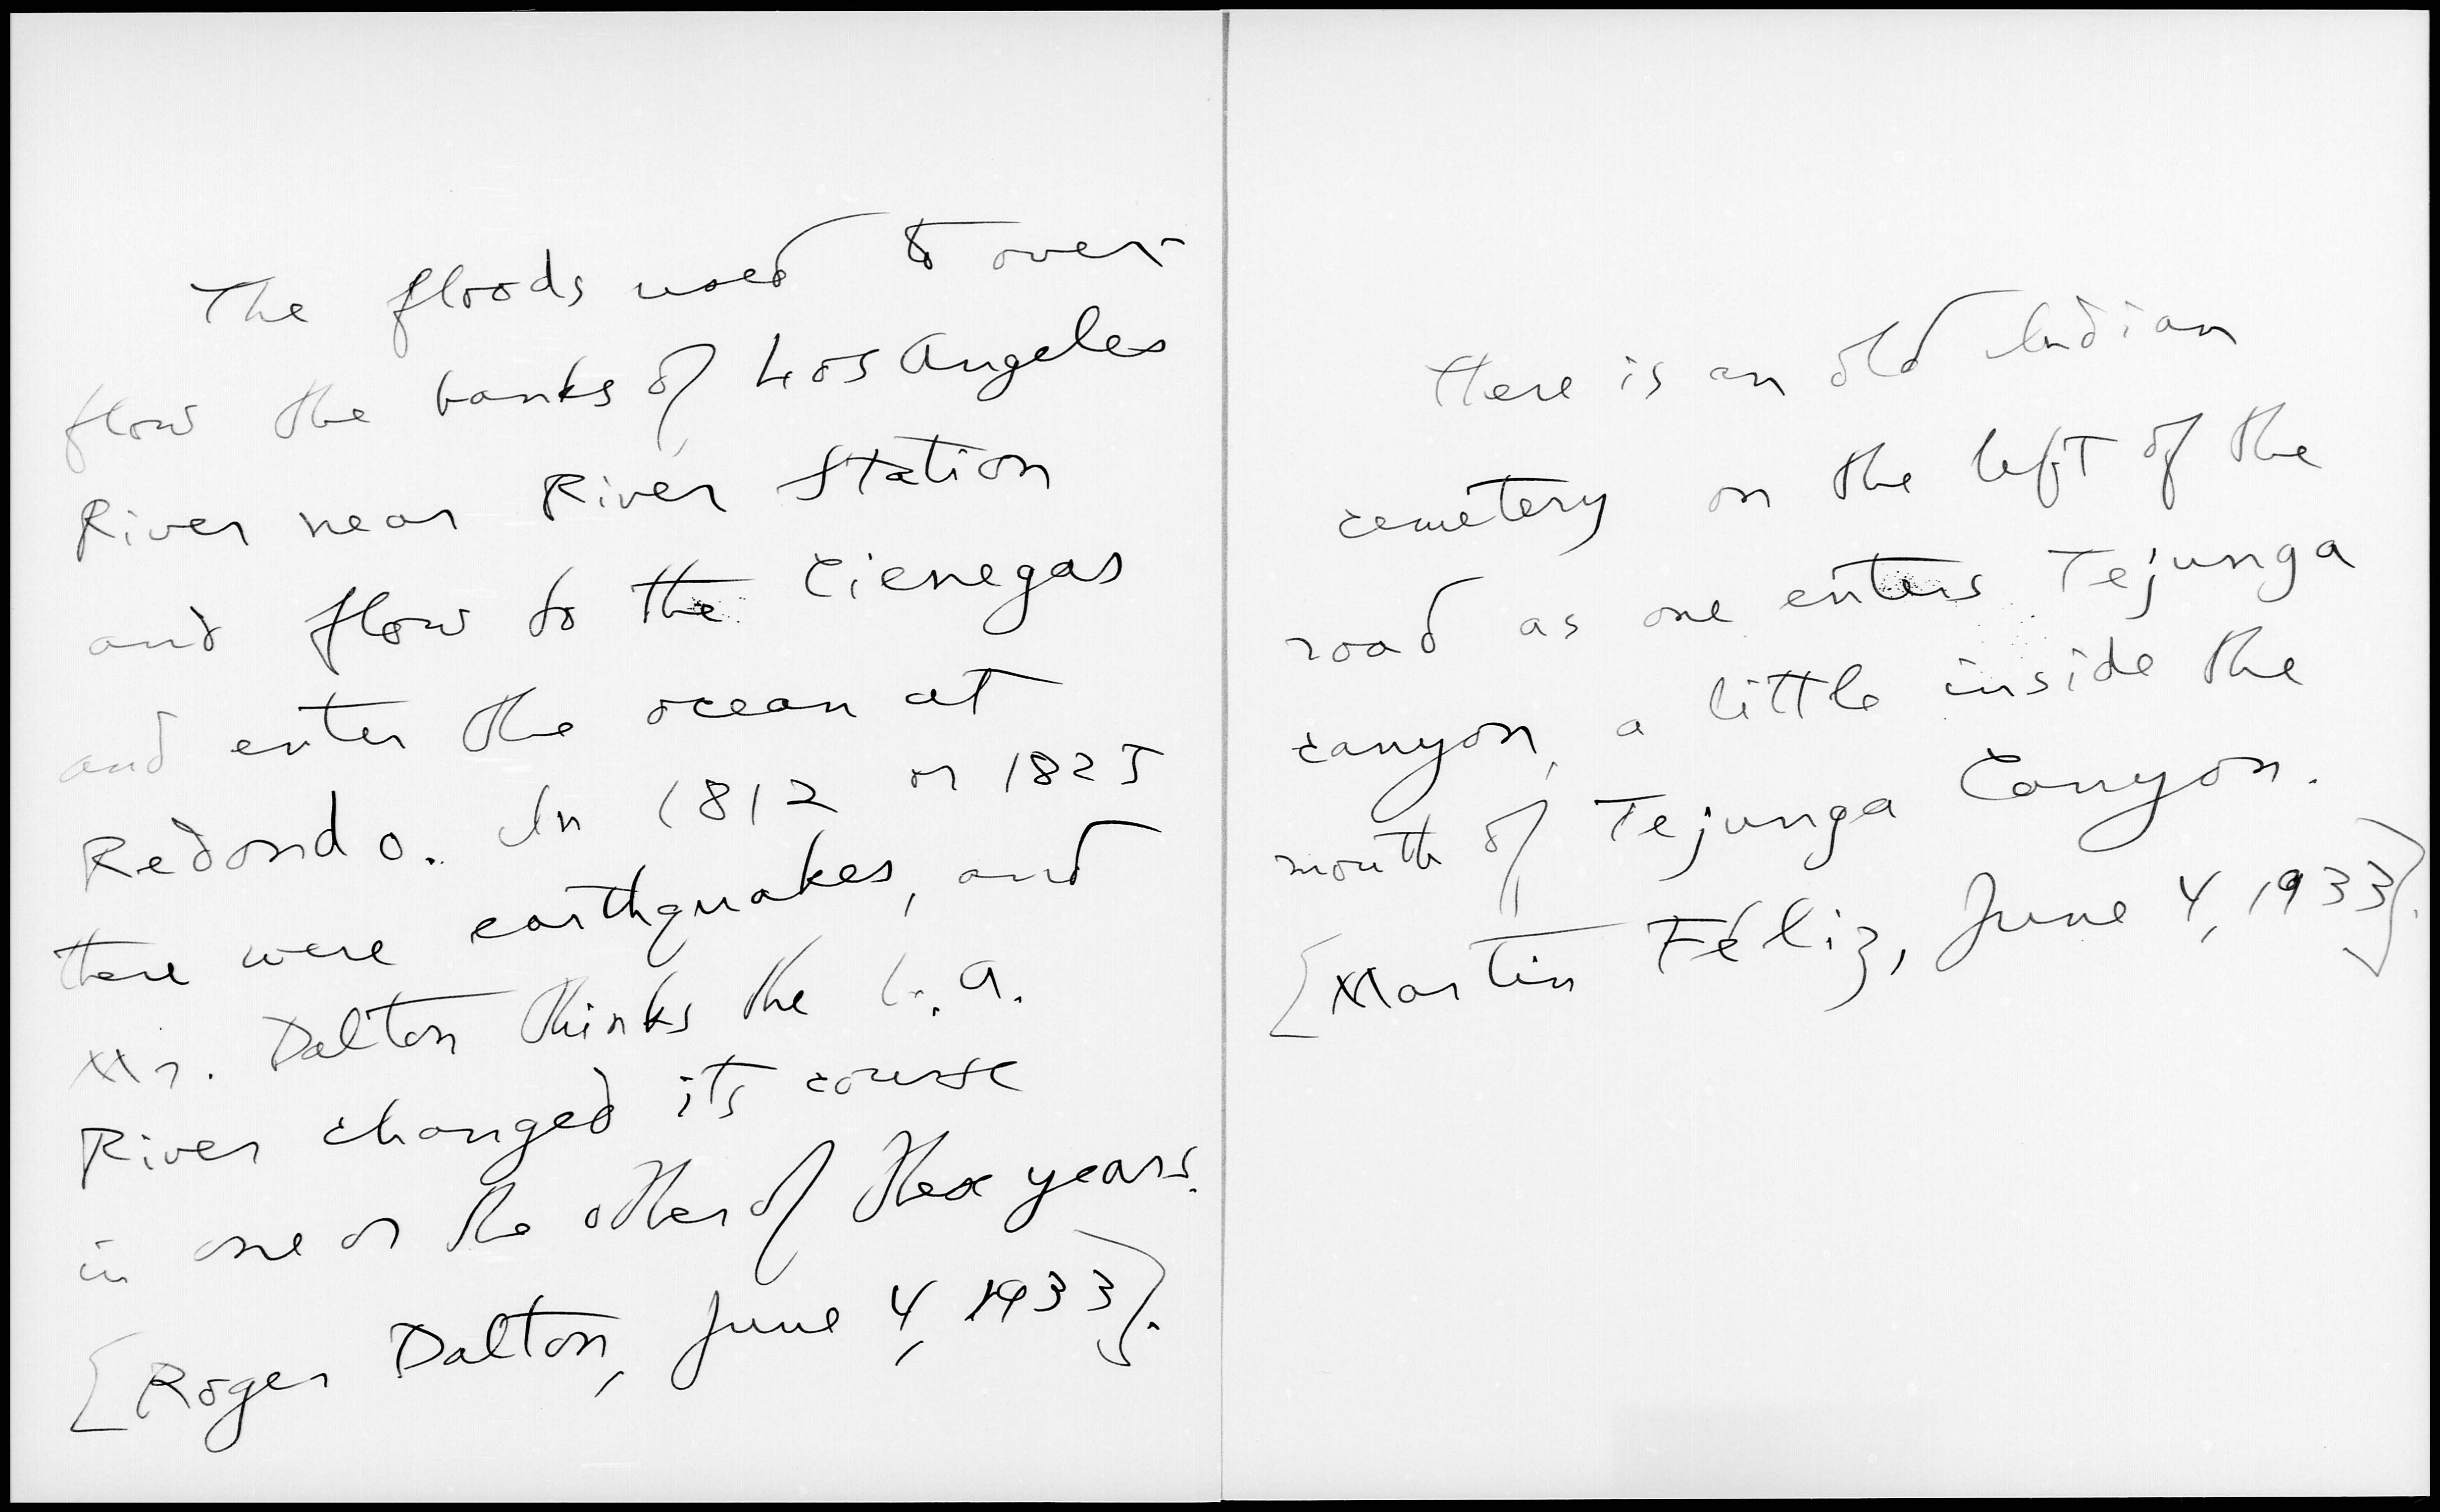 The floods used to over-
flow the banks of Los Angeles
River near River Station
and flow to the Cienegas
and enter the ocean at
Redondo. In 1812 or 1825
there were earthquakes, and
Mr. Dalton thinks the L.A.
River changed its course
in one or the other of these years.
[Roger Dalton, June 4, 1933].
There is an old Indian
cemetery on the left of the
road as one enters Tejunga
canyon, a little inside the
mouth of Tejunga Canyon.
[Martin Féliz, June 4, 1933].